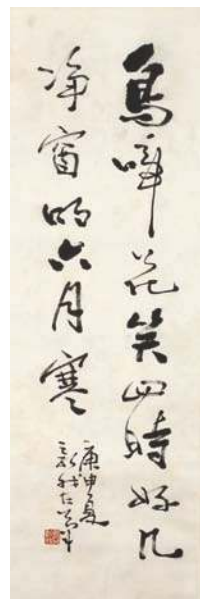 鳥啼花笑四時好几
净窗明六月寒
庚申夏